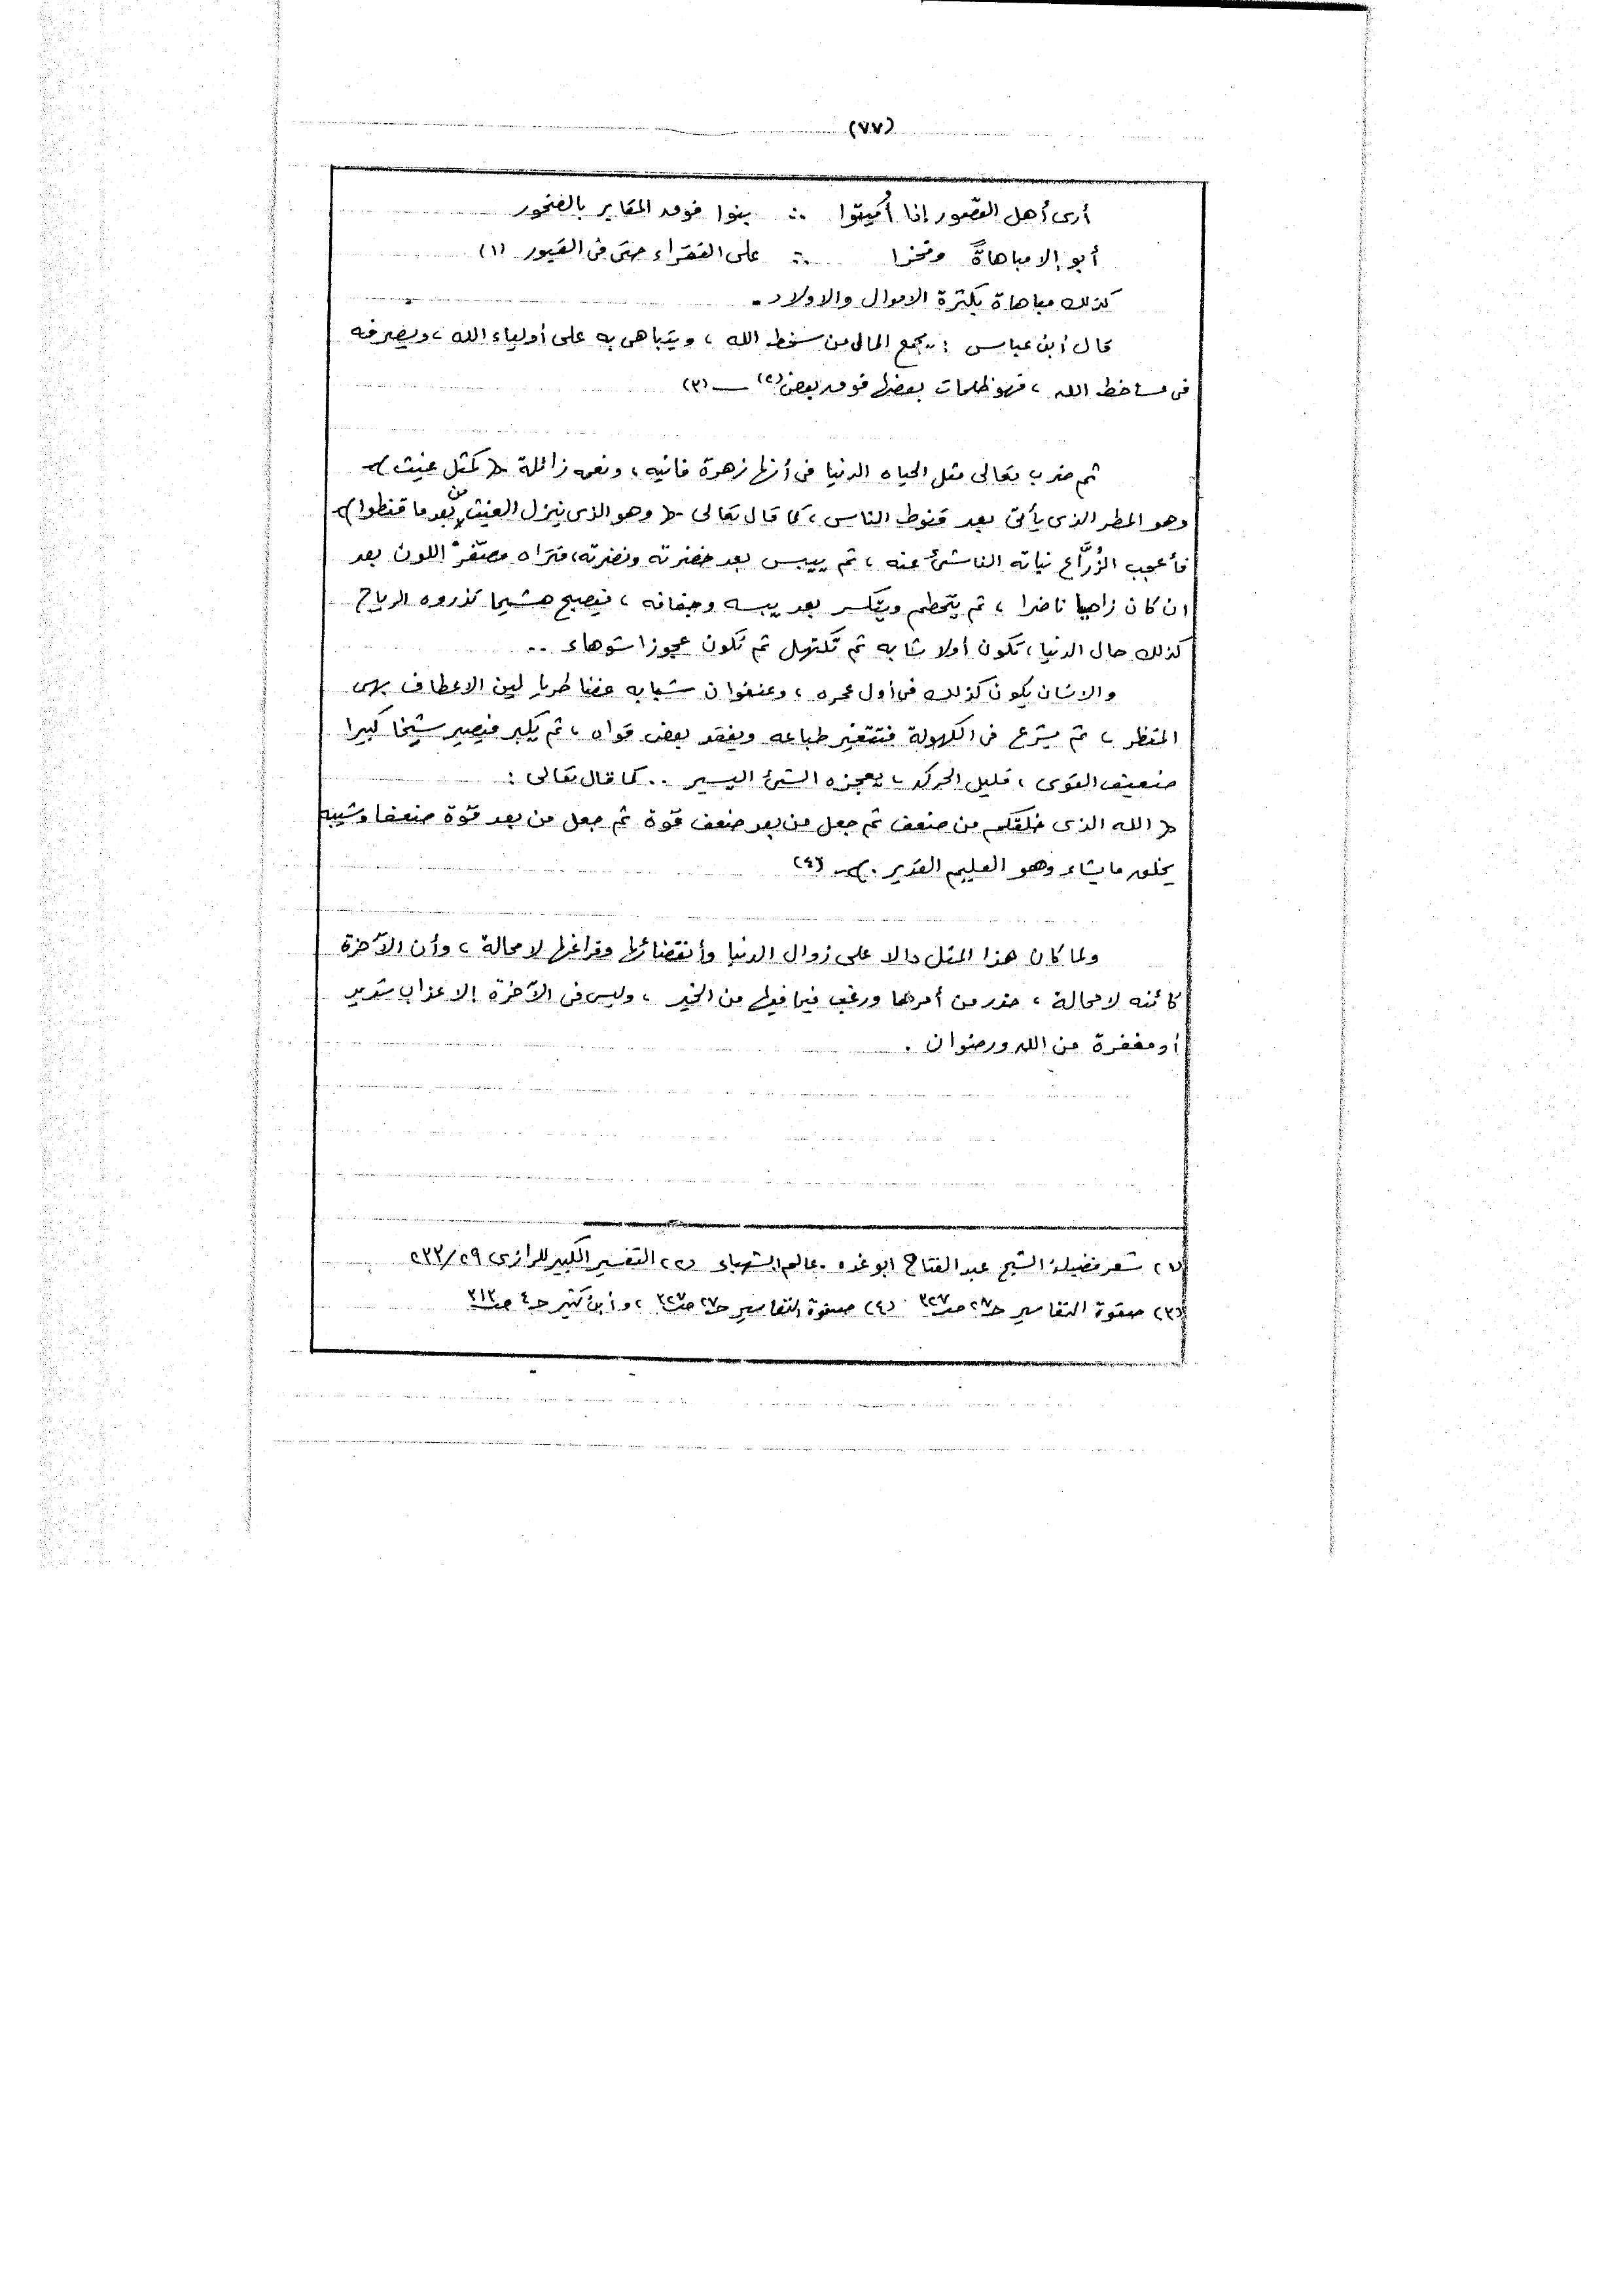 (٧٧)
أرى أهل القصور إذا أُميتوا ∴ بنوا فوق المقابر بالصخور
أبو إلا مباهاةً وفخرا ∴ على الفقراء حتى فى القبور (١)
كذلك مباهاة بكثرة الاموال والاولاد .
قال أبن عباس : " يجمع المال من سخط الله ، ويتباهى به على أولياء الله ، ويصرفه
فى مساخط الله ، فهو ظلمات بعضها فوق بعض (٢) ــ (٣)
ثم ضرب تعالى مثل الحياه الدنيا فى أنها زهرة فانيه ، ونعمه زائلة ﴿ كمثل غيث ﴾
وهو المطر الذى يأتى بعد قنوط الناس ، كما قال تعالى ﴿ وهو الذى ينزل الغيث من بعد ما قنطوا ﴾
فأعجب الزُّرَّاع نباته الناشئ عنه ، ثم ييبس بعد خضرته ونضرته ، فتراه مصفرّ اللون بعد
ان كان زاهيا ناضرا ، ثم يتحطم ويتكسر بعد يبسه وجفافه ، فيصبح هشيما تذروه الرياح
كذلك حال الدنيا ، تكون أولا شابه ثم تكتهل ثم تكون عجوزا شوهاء ..
والانسان يكون كذلك فى أول عمره ، وعنفوان شبابه غضا طريا لين الاعطاف بهى
المنظر ، ثم يشرع فى الكهولة فتتغير طباعه ويفقد بعض قواه ، ثم يكبر فيصير شيخا كبيرا
ضعيف القوى ، قليل الحركه ، يعجزه الشئ اليسير .. كما قال تعالى :
﴿ الله الذى خلقكم من ضعف ثم جعل من بعد ضعف قوة ثم جعل من بعد قوة ضعفا وشيبه
يخلق ما يشاء وهو العليم القدير . ﴾ ـ (٤)
ولما كان هذا المثل دالا على زوال الدنيا وأنقضائها وفراغها لا محالة ، وأن الآخرة
كائنه لا محالة ، حذر من أمرها ورغب فيما فيها من الخير ، وليس فى الآخرة إلا عذاب شديد
أو مغفرة من الله ورضوان .
(١) شعر فضيلة الشيخ عبد الفتاح ابو غده . عالم الشهباء (٢) التفسير الكبير للرازى ٢٩/٢٣٣
(٣) صفوة التفاسير حـ٢٧ صـ٣٢٧ (٤) صفوة التفاسير حـ٢٧ صـ٣٢٧ ، وأبن كثير حـ٤ صـ٣١٣